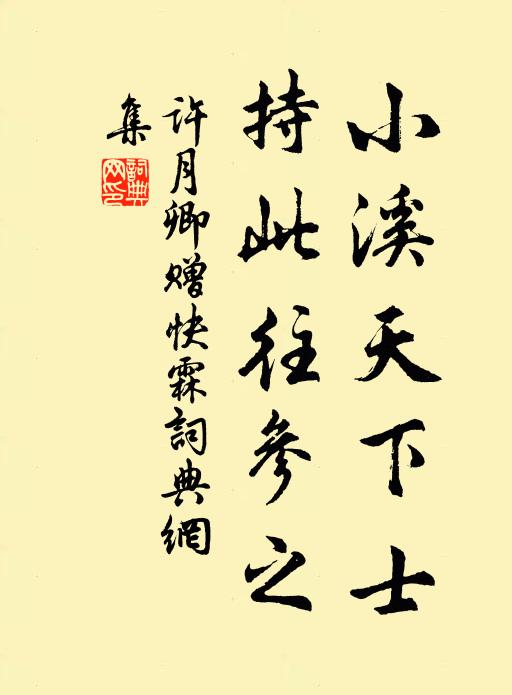 小溪天下士
持此往參之
許月卿贈快霖詞典網
集
詞典網印